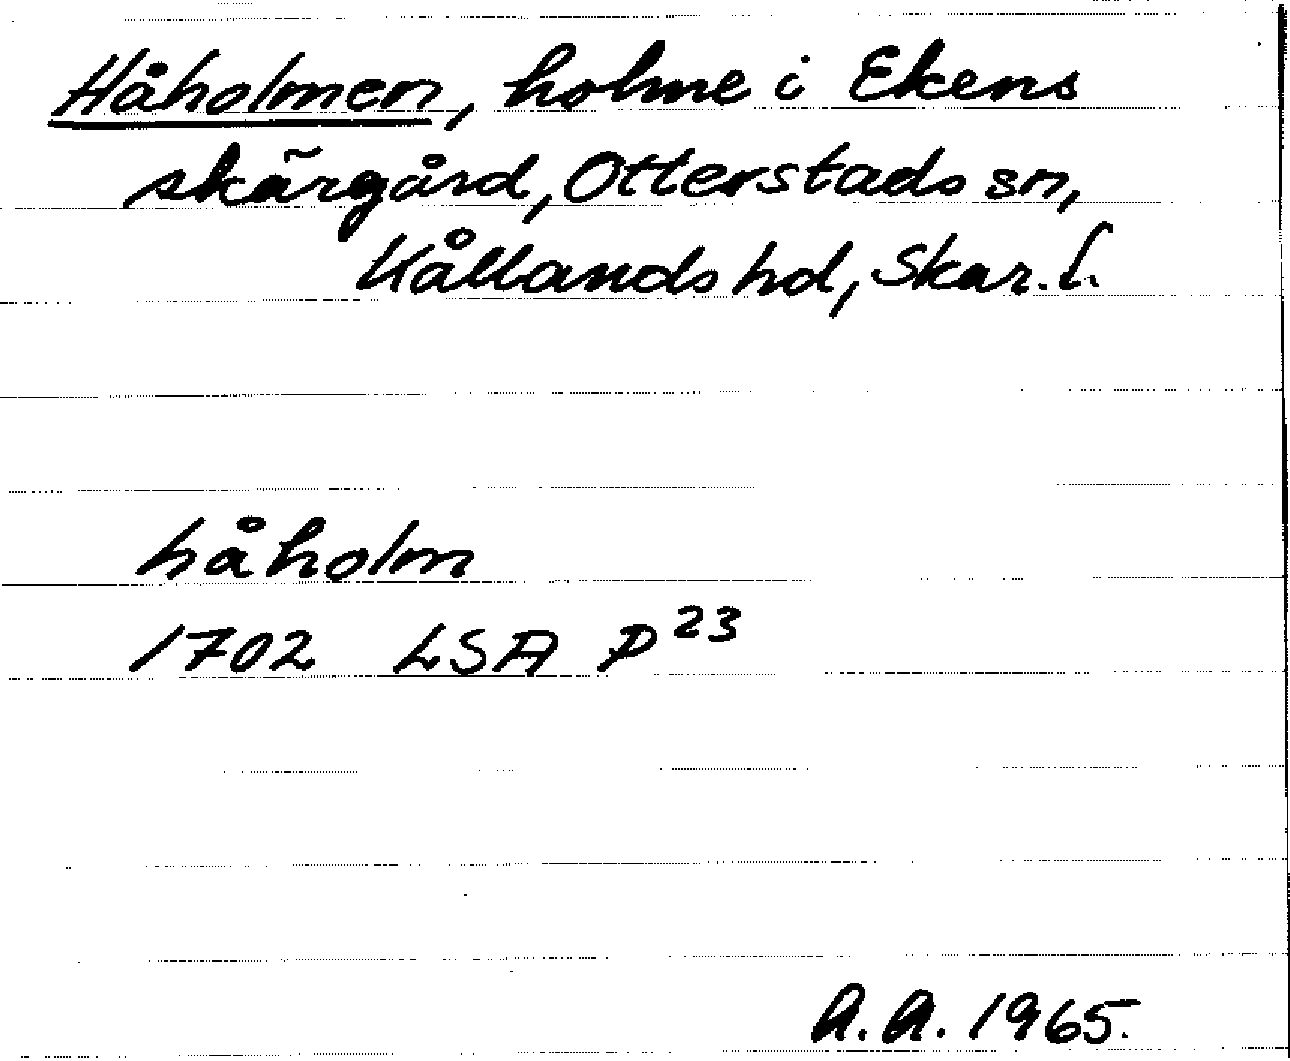 Håholmen, holme i Ekens
skärgård, Otterstads sn,
Kållands hd, Skar. l.
håholm
1702 LSA P²³
A.A. 1965.